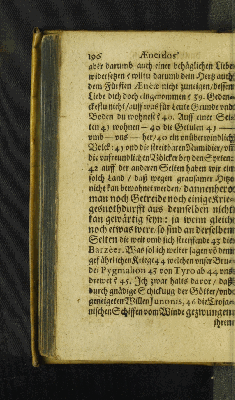 196 ÆNEIDOS
aber darumb auch einer behäglichen Liebe
widersetzen? wiltu darumb dein Hertz auch
dem Fürsten ÆNEÆ nicht zuneigen, dessen
Liebe dich doch eingenommen? 39. Geden-
ckestu nicht / auff was für Leute Grunde und
Boden du wohnest? 40. Auff einer Sei-
ten 41 wohnen — 40 die Getuler 41 —
und — uns — her / 40 ein unüberwindlich
Volck: 43 und die streitbaren Numidier / und
die unfreundlichen Völcker bey den Syrten:
42 auff der anderen Seiten haben wir ein
solch Land / daß wegen grausamer Hitze
nicht kan bewohnet werden / dannenhero
man noch Getreide noch einige Krie-
gesnothdurfft aus demselben nicht
kan gewärtig seyn: ja wenn gleich
noch etwas were / so sind an derselben
Seiten die weit umb sich streiffende 43 die
Barcæer. Was sol ich weiter sagen von dem
gefährlichen Kriege 44 welchen unser Bru-
der Pygmalion 45 von Tyro ab 44 uns
drewet? 45. Ich zwar halts davor / daß
durch gnädige Schickung der Götter / und
geneigeten Willen Junonis, 46 die Troja-
nischen Schiffen vom Winde gezwungen
ihren